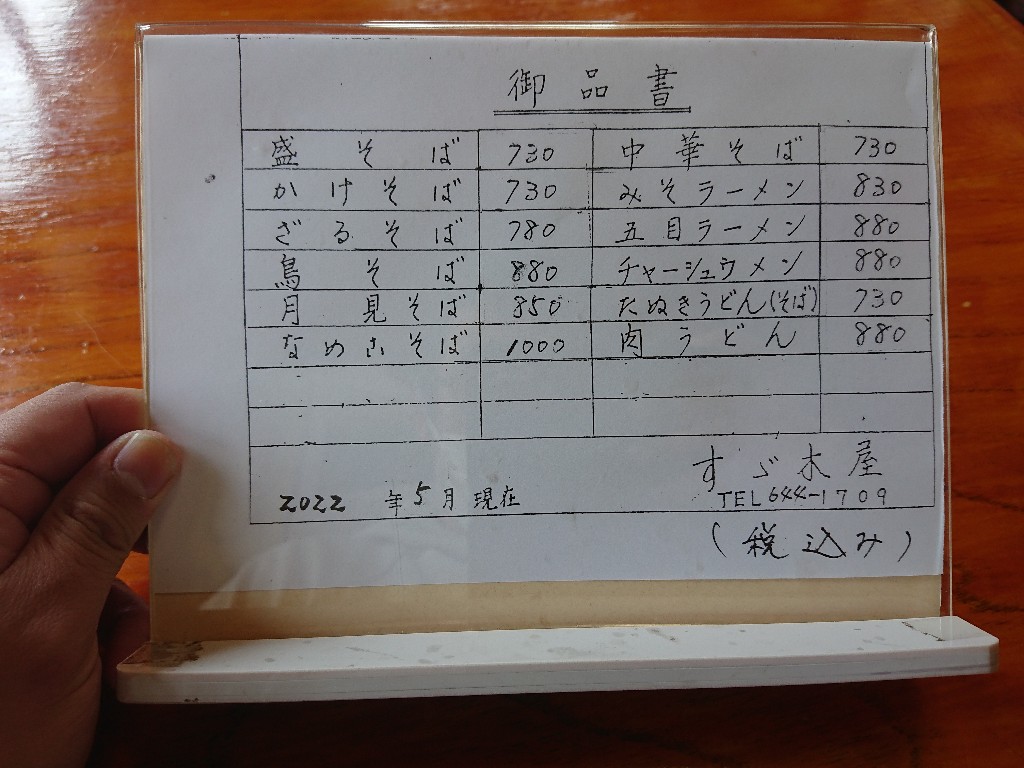 御品書
盛そば 730 中華そば 730
かけそば 730 みそラーメン 830
ざるそば 780 五目ラーメン 880
鳥そば 880 チャーシュウメン 880
月見そば 850 たぬきうどん(そば) 730
なめこそば 1000 肉うどん 880
すゞ木屋
2022 年5月現在 TEL 644-1709
(税込み)